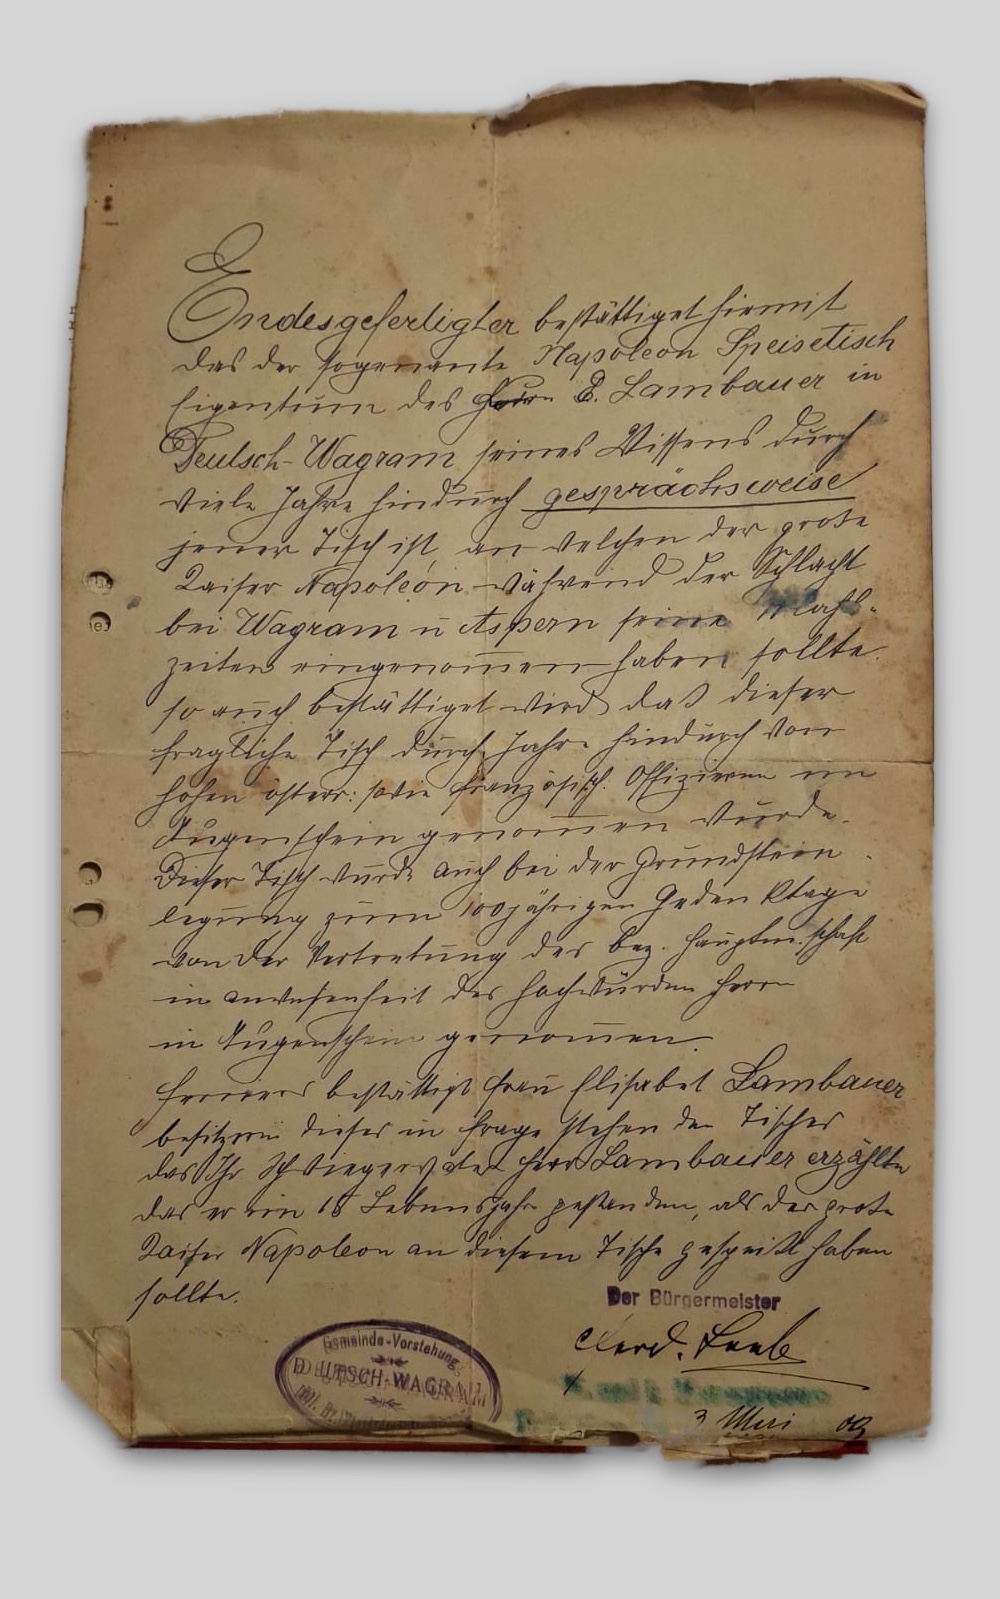 Endesgefertigter bestättiget hiemit
das der sogenante Napoleon Speisetisch
Eigentum des E. Lambauer in
Deutsch-Wagram seines Wissens durch
viele Jahre hindurch gesprächsweise
jener Tisch ist, an welchen der grose
Kaiser Napoleón während der Schlacht
bei Wagram u Aspern seine Mahl-
zeiten eingenom̅en haben sollte.
so auch bestättiget wird das dieser
fragliche Tisch durch Jahre hindurch von
hohen österr: sowie französisch. Offizieren in
Augenschein genom̅en wurde.
Dieser Tisch wurde auch bei der Grundstein-
legung zum 100jährigen Gedenktage
von der Vertretung der Bez. Hauptm.schaft
in anwesenheit des hochwürden Herrn
in Augenschein genom̅en.
Ferners bestättigt Frau Elisabet Lambauer
besitzerin dieses in Frage stehenden Tisches
das Ihr Schwiegervater Herr Lambauer erzählte
das er im 18 Lebensjahr gestanden, als der grose
Kaiser Napoleon an diesem Tische gespeist haben
sollte.
Der Bürgermeister
Gemeinde-Vorstehung
DEUTSCH-WAGRAM
3 09